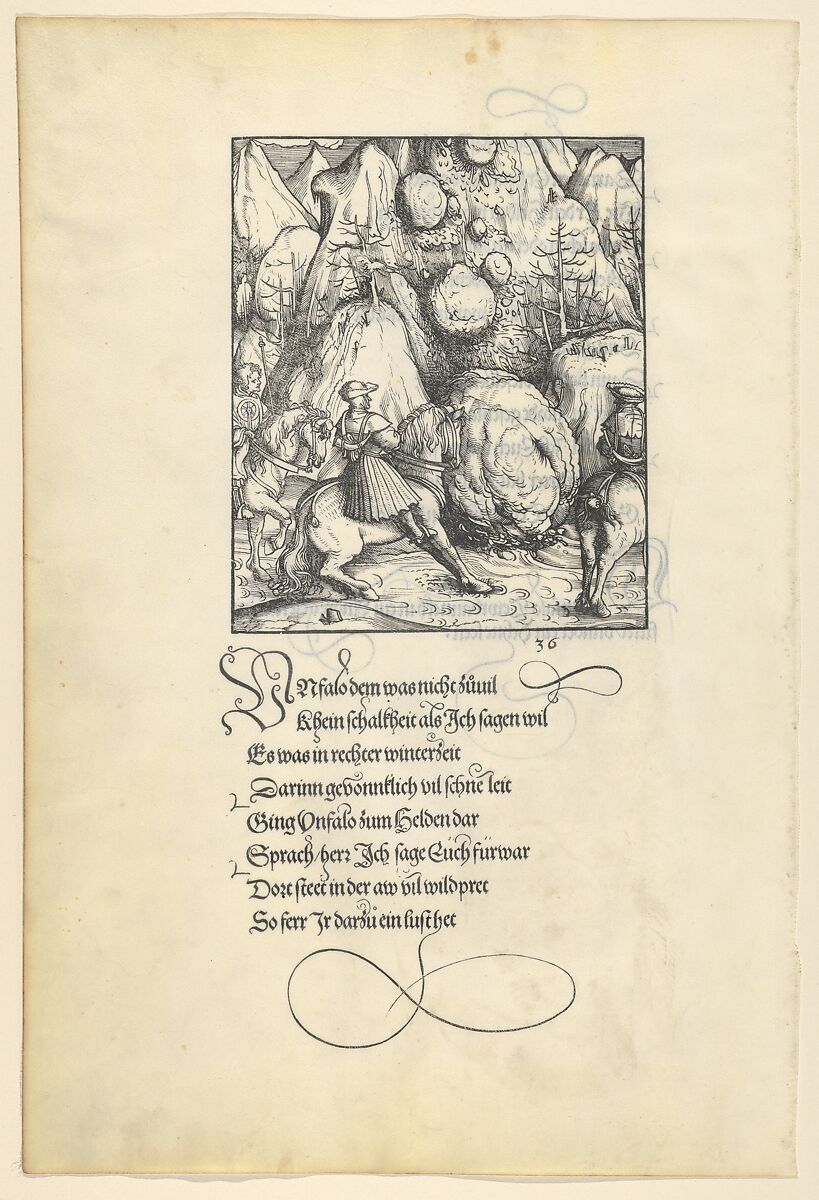 36
VNfalo dem was nicht zůuil
Khein schalkheit als Ich sagen wil
Es was in rechter winterzeit
Darinn gevonnklich vil schne leit
Ging Vnfalo zum Helden dar
Sprach/herr Ich sage Euch fürwar
Dort steet in der aw vil wildpret
So ferr Ir darzů ein lust het